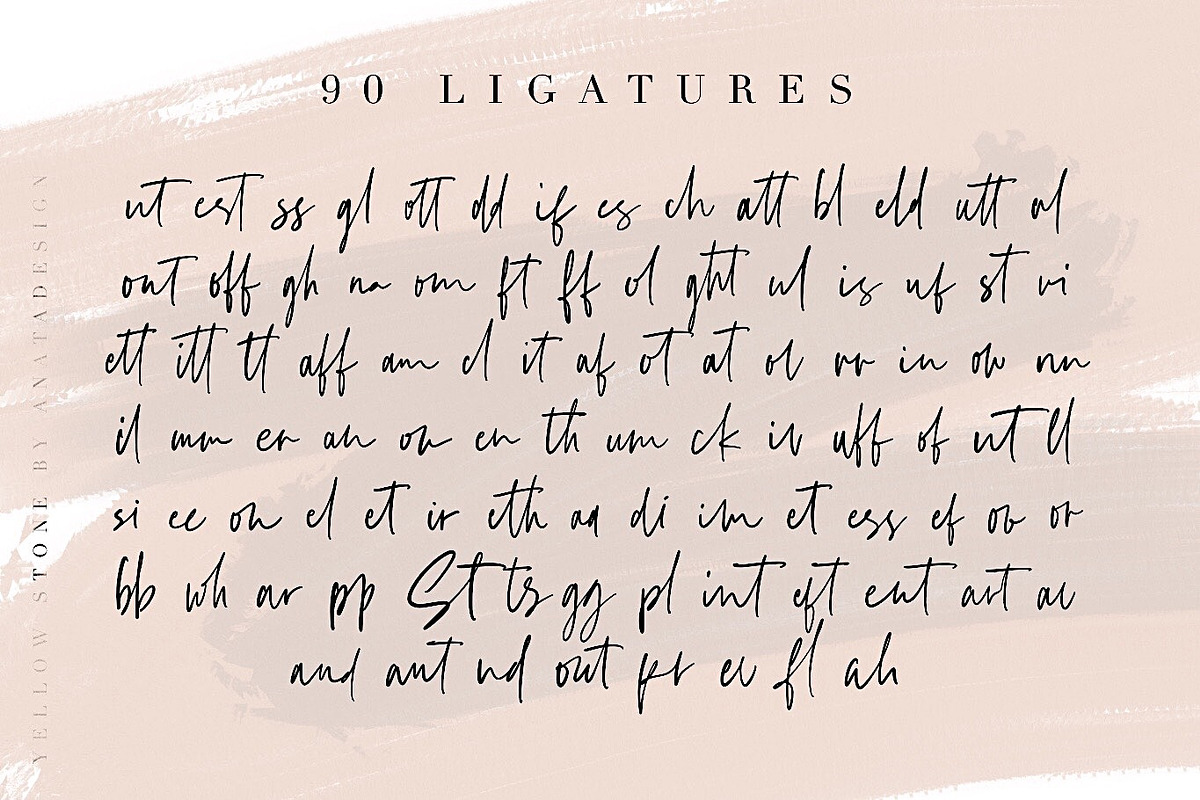 90 LIGATURES
est ss gl ott dd if es ch att bl eld utt al
off gh na om ft ff ol ght ul is uf st vi
ett itt tt aff am cl it af ot at ol in ow
il mm er an en th um ck uff of ll
si ee on el et ir eth di im et ess ef or
bb wh ar pp St ts gg pl int eft ent art
and nd fl ah
YELLOW STONE BY ANATADESIGN